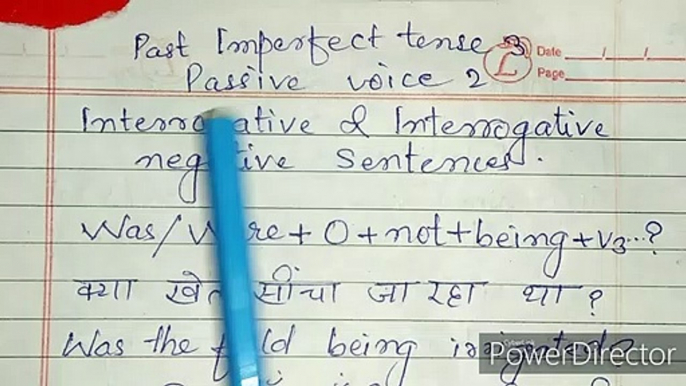 Past Imperfect tense 3
Date / /
Passive voice 2
L
Page
Interrogative & Interrogative
negative sentences.
Was/Were + O + not + being + V3...?
क्या खेत सींचा जा रहा था ?
Was the field being irrigated?
PowerDirector